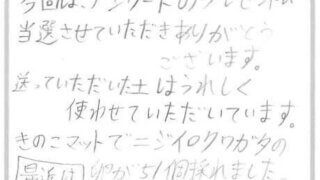 今回は、アンケートのプレゼントに
当選させていただきありがとう
ございます。
送っていただいた土はうれしく
使わせていただいています。
きのこマットでニジイロクワガタの
最近は 卵が51個採れました。